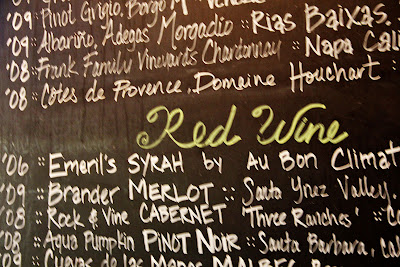 '09 :: Pinot Grigio, Borgo M
'09 :: Albariño, Adegas Morgadio :: Rias Baixas,
'08 :: Frank Family Vineyards Chardonnay :: Napa Cali
'08 :: Cotes de Provence, Domaine Houchart ::
Red Wine
'06 :: Emeril's SYRAH by AU BON CLIMAT
'09 :: Brander MERLOT :: Santa Ynez Valley,
'08 :: Rock & Vine CABERNET 'Three Ranches' ::
'08 :: Aqua Pumpkin PINOT NOIR :: Santa Barbara, cal
'09 :: Cuevas de las Manos MALBEC